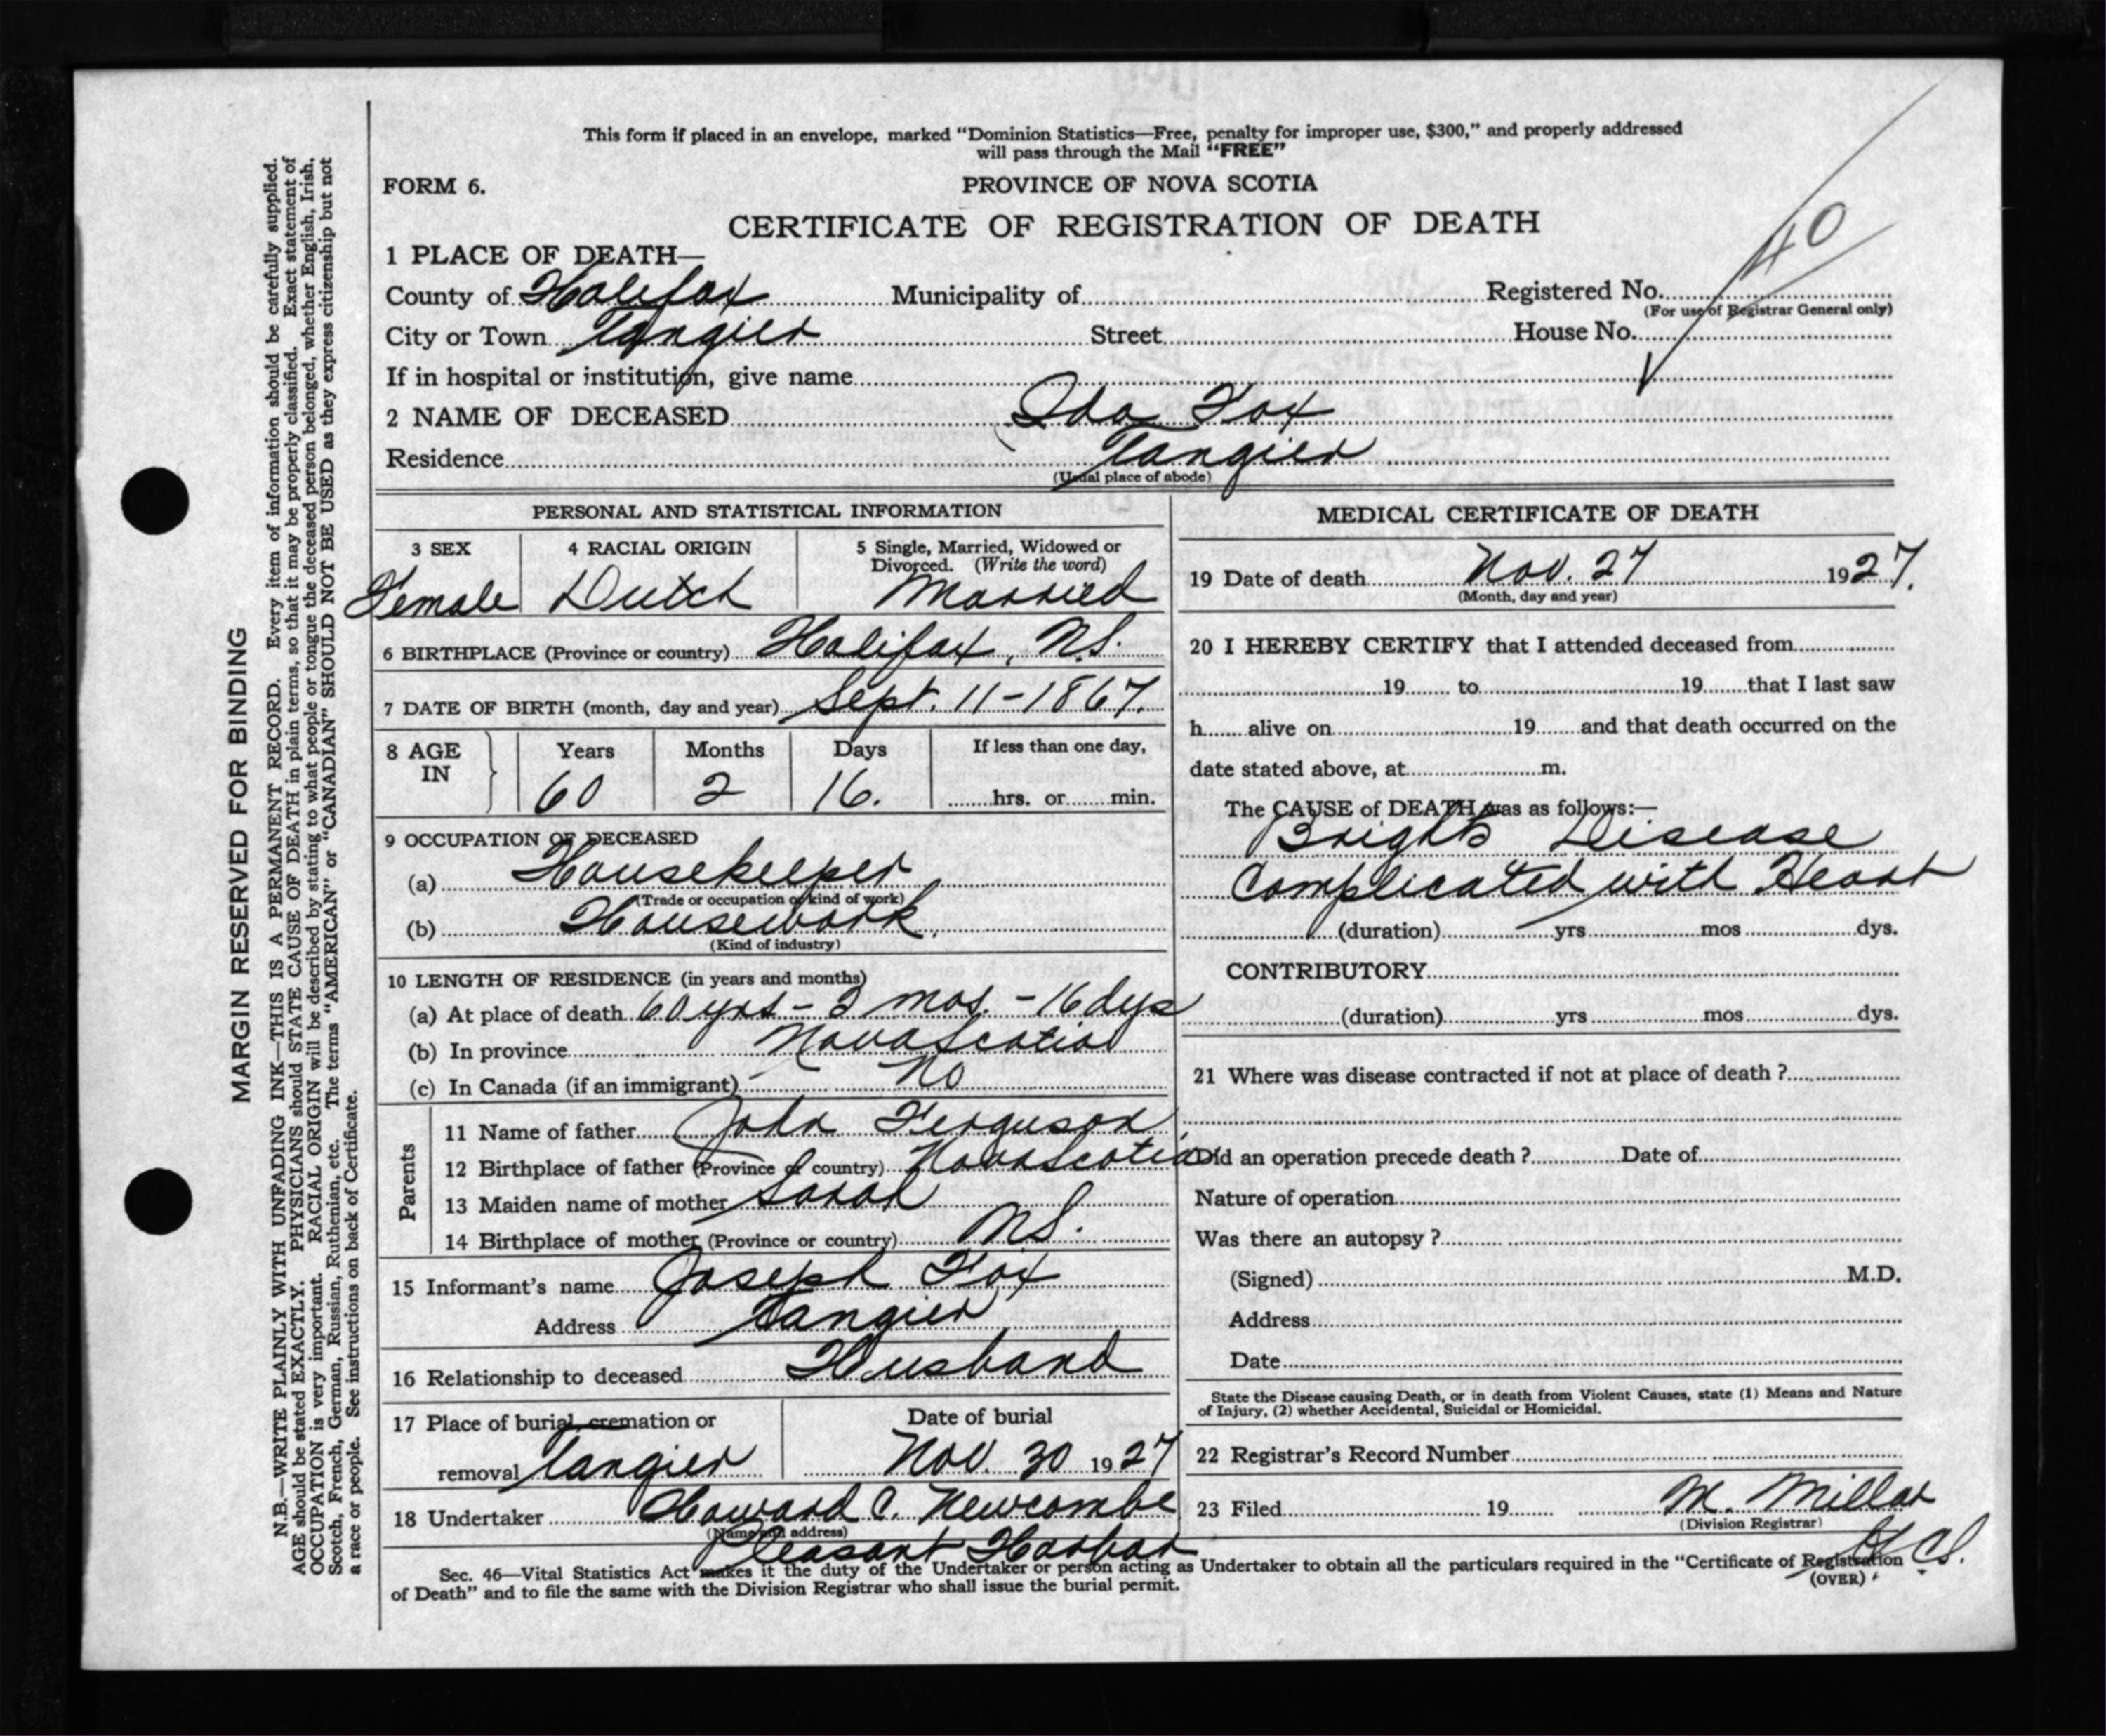 This form if placed in an envelope, marked "Dominion Statistics—Free, penalty for improper use, $300," and properly addressed
will pass through the Mail "FREE"
FORM 6.
PROVINCE OF NOVA SCOTIA
CERTIFICATE OF REGISTRATION OF DEATH
40
1 PLACE OF DEATH—
County of Halifax Municipality of Registered No.
(For use of Registrar General only)
City or Town Tangier Street House No.
If in hospital or institution, give name
2 NAME OF DECEASED Ida Fox
Residence Tangier
(Usual place of abode)
PERSONAL AND STATISTICAL INFORMATION
3 SEX 4 RACIAL ORIGIN 5 Single, Married, Widowed or
Divorced. (Write the word)
Female Dutch Married
6 BIRTHPLACE (Province or country) Halifax, N.S.
7 DATE OF BIRTH (month, day and year) Sept. 11-1867.
8 AGE IN Years Months Days If less than one day,
60 2 16. hrs. or min.
9 OCCUPATION OF DECEASED
(a) Housekeeper
(Trade or occupation or kind of work)
(b) Housework.
(Kind of industry)
10 LENGTH OF RESIDENCE (in years and months)
(a) At place of death 60 yrs - 2 mos. - 16 dys
(b) In province Nova Scotia
(c) In Canada (if an immigrant) No
Parents
11 Name of father John Ferguson,
12 Birthplace of father (Province or country) Nova Scotia
13 Maiden name of mother Sarah
14 Birthplace of mother (Province or country) N.S.
15 Informant's name Joseph Fox
Address Tangier
16 Relationship to deceased Husband
17 Place of burial, cremation or Date of burial
removal Tangier Nov. 30 1927
18 Undertaker Howard C. Newcombe
(Name and address)
Pleasant Harbor
MEDICAL CERTIFICATE OF DEATH
19 Date of death Nov. 27 1927.
(Month, day and year)
20 I HEREBY CERTIFY that I attended deceased from
19 to 19 that I last saw
h alive on 19 and that death occurred on the
date stated above, at m.
The CAUSE of DEATH was as follows:—
Brights Disease
Complicated with Heart
(duration) yrs mos dys.
CONTRIBUTORY
(duration) yrs mos dys.
21 Where was disease contracted if not at place of death ?
Did an operation precede death ? Date of
Nature of operation
Was there an autopsy ?
(Signed) M.D.
Address
Date
State the Disease causing Death, or in death from Violent Causes, state (1) Means and Nature
of Injury, (2) whether Accidental, Suicidal or Homicidal.
22 Registrar's Record Number
23 Filed 19 M. Millar
(Division Registrar)
Sec. 46—Vital Statistics Act makes it the duty of the Undertaker or person acting as Undertaker to obtain all the particulars required in the "Certificate of Registration
of Death" and to file the same with the Division Registrar who shall issue the burial permit.
(OVER)
MARGIN RESERVED FOR BINDING
N.B.—WRITE PLAINLY WITH UNFADING INK—THIS IS A PERMANENT RECORD. Every item of information should be carefully supplied.
AGE should be stated EXACTLY. PHYSICIANS should STATE CAUSE OF DEATH in plain terms, so that it may be properly classified. Exact statement of
OCCUPATION is very important. RACIAL ORIGIN will be described by stating to what people or tongue the deceased person belonged, whether English, Irish,
Scotch, French, German, Russian, Ruthenian, etc. The terms "AMERICAN" or "CANADIAN" SHOULD NOT BE USED as they express citizenship but not
a race or people. See instructions on back of Certificate.